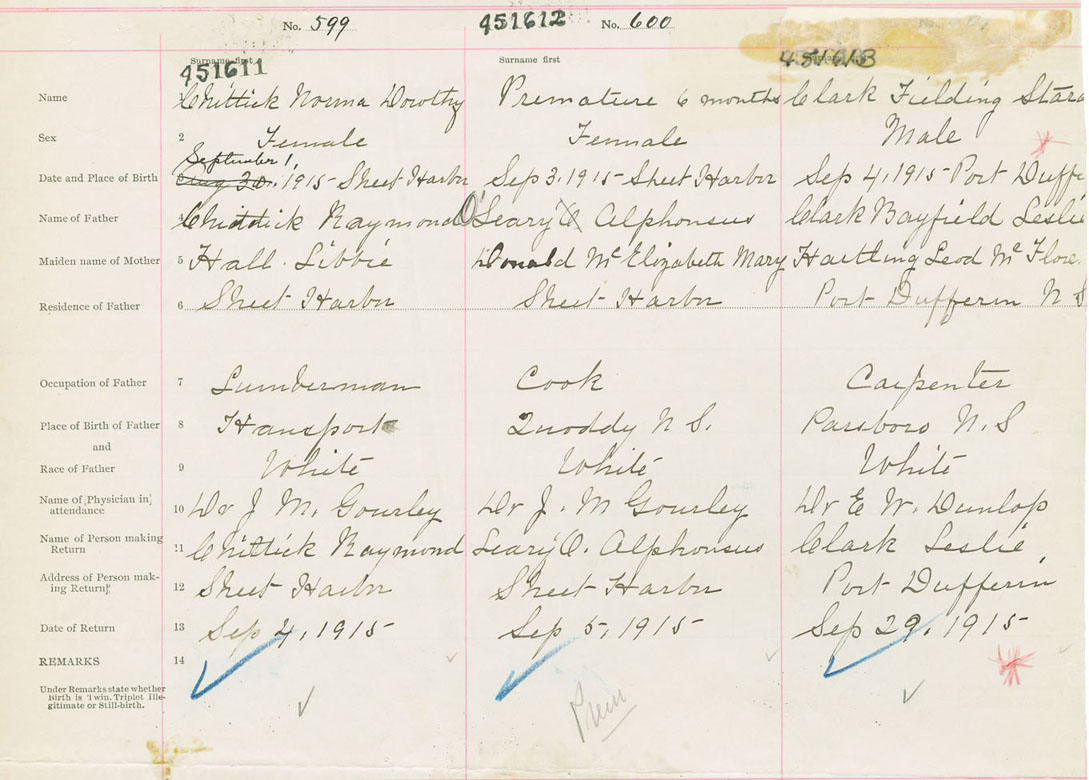 No. 599 451612 No. 600
Surname first Surname first
451611 451613
Name 1 Chittick Norma Dorothy Premature 6 months Clark Fielding
Sex 2 Female Female Male
September 1,
Date and Place of Birth 3 Aug 30, 1915 - Sheet Harbor Sep 3, 1915 - Sheet Harbor Sep 4, 1915 - Port Duffe
Name of Father 4 Chittick Raymond O'Leary O Alphonsus Clark Bayfield Leslie
Maiden name of Mother 5 Hall. Libbie Donald Mc Elizabeth Mary Hartling Leod Mc Flore
Residence of Father 6 Sheet Harbor Sheet Harbor Port Dufferin N S
Occupation of Father 7 Lumberman Cook Carpenter
Place of Birth of Father 8 Hansport Quoddy N S. Parsboro N. S
and
Race of Father 9 White White White
Name of Physician in attendance 10 Dr J. M. Gourley Dr J. M Gourley Dr E. W. Dunlop
Name of Person making Return 11 Chittick Raymond Leary O. Alphonsus Clark Leslie
Address of Person making Return 12 Sheet Harbor Sheet Harbor Port Dufferin
Date of Return 13 Sep 4, 1915 - Sep 5, 1915 - Sep 29, 1915 -
REMARKS 14
Under Remarks state whether
Birth is Twin, Triplet Ille-
gitimate or Still-birth.
Prem